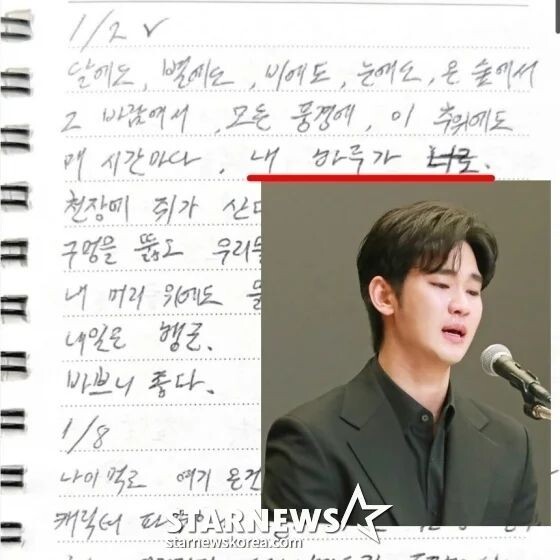 1/2 ✓
달에도, 별에도, 비에도, 눈에도, 온 숲에서
그 바람에서, 모든 풍경에, 이 추위에도
매 시간마다, 내 하루가 너로.
천장에 쥐가 산다
구멍을 뚫고 우리들
내 머리 위에도
내일은 행군.
바쁘니 좋다.
1/8
나이 먹고 여기 온건
캐릭터
STARNEWS
starnewskorea.com